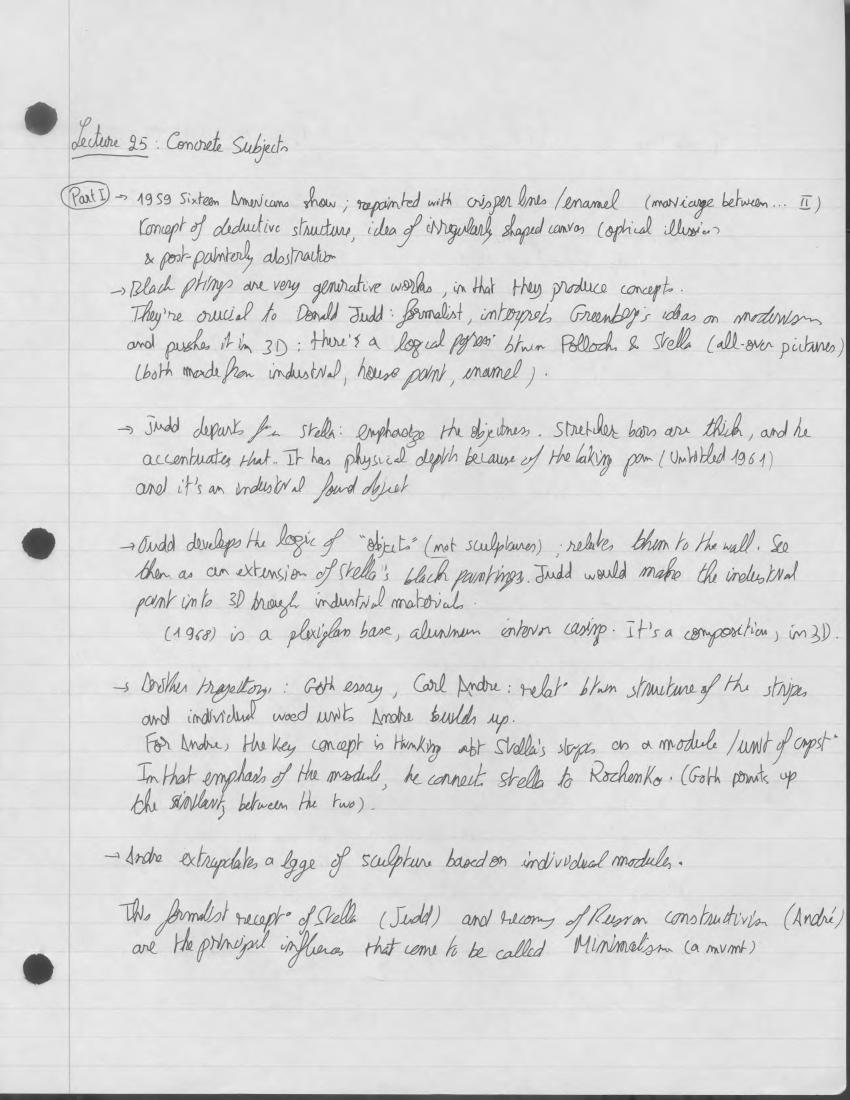 Lecture 25 : Concrete Subjects
Part I → 1959 Sixteen Americans show ; repainted with crisper lines / enamel (marriage between... II)
Koncept of deductive structure, idea of irregularly shaped canvas (optical illusion
& post-painterly abstraction
→ Black ptings are very generative works, in that they produce concepts.
They're crucial to Donald Judd : formalist, interprets Greenberg's ideas on modernism
and pushes it in 3D : there's a logical btwn Pollock & Stella (all-over pictures)
(both made from industrial, house paint, enamel).
→ Judd departs from Stella : emphasize the objectness. Stretcher bars are thick, and he
accentuates that. It has physical depth because of the baking pan (Untitled 1961)
and it's an industrial found object
→ Judd develops the logic of "objects" (not sculptures) ; relates them to the wall. See
them as an extension of Stella's black paintings. Judd would make the industrial
paint into 3D through industrial materials.
(1968) is a plexiglass base, aluminum interior casing. It's a composition, in 3D.
→ Another trajectory : Goth essay, Carl Andre : relat° btwn structure of the stripes
and individual wood units Andre builds up.
For Andre, the key concept is thinking abt Stella's stripes as a module / unit of cmpst°
In that emphasis of the module, he connects Stella to Rochenko. (Goth points up
the similarity between the two).
→ Andre extrapolates a lgge of sculpture based on individual modules.
This formalist recept° of Stella (Judd) and of Russian constructivism (André)
are the principal influences that come to be called Minimalism (a mvmt)